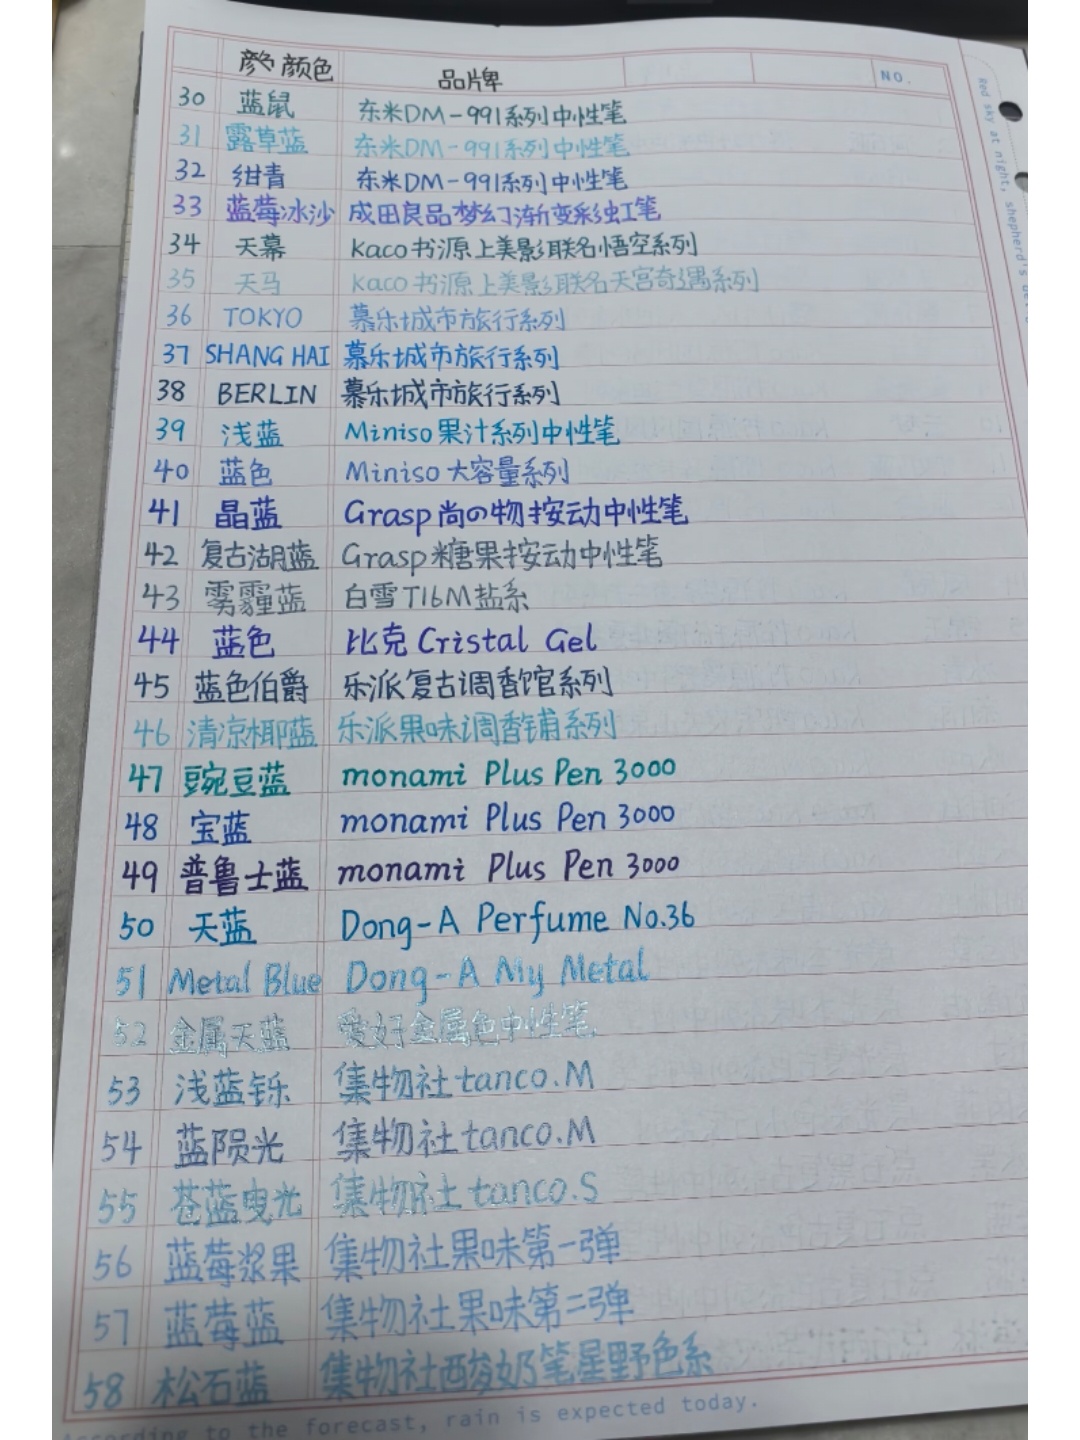 颜色 品牌 NO.
30 蓝鼠 东米DM-991系列中性笔
31 露草蓝 东米DM-991系列中性笔
32 绀青 东米DM-991系列中性笔
33 蓝莓冰沙 成田良品梦幻渐变彩虹笔
34 天幕 Kaco书源上美影联名悟空系列
35 天马 Kaco书源上美影联名天宫奇遇系列
36 TOKYO 慕乐城市旅行系列
37 SHANG HAI 慕乐城市旅行系列
38 BERLIN 慕乐城市旅行系列
39 浅蓝 Miniso果汁系列中性笔
40 蓝色 Miniso大容量系列
41 晶蓝 Grasp尚の物按动中性笔
42 复古湖蓝 Grasp糖果按动中性笔
43 雾霾蓝 白雪T16M盐系
44 蓝色 比克Cristal Gel
45 蓝色伯爵 乐派复古调香馆系列
46 清凉椰蓝 乐派果味调香铺系列
47 豌豆蓝 monami Plus Pen 3000
48 宝蓝 monami Plus Pen 3000
49 普鲁士蓝 monami Plus Pen 3000
50 天蓝 Dong-A Perfume No.36
51 Metal Blue Dong-A My Metal
52 金属天蓝 爱好金属色中性笔
53 浅蓝铄 集物社tanco.M
54 蓝陨光 集物社tanco.M
55 苍蓝曳光 集物社tanco.S
56 蓝莓浆果 集物社果味第一弹
57 蓝莓蓝 集物社果味第二弹
58 松石蓝 集物社酸奶笔星野色系
According to the forecast, rain is expected today.
Red sky at night, shepherd's